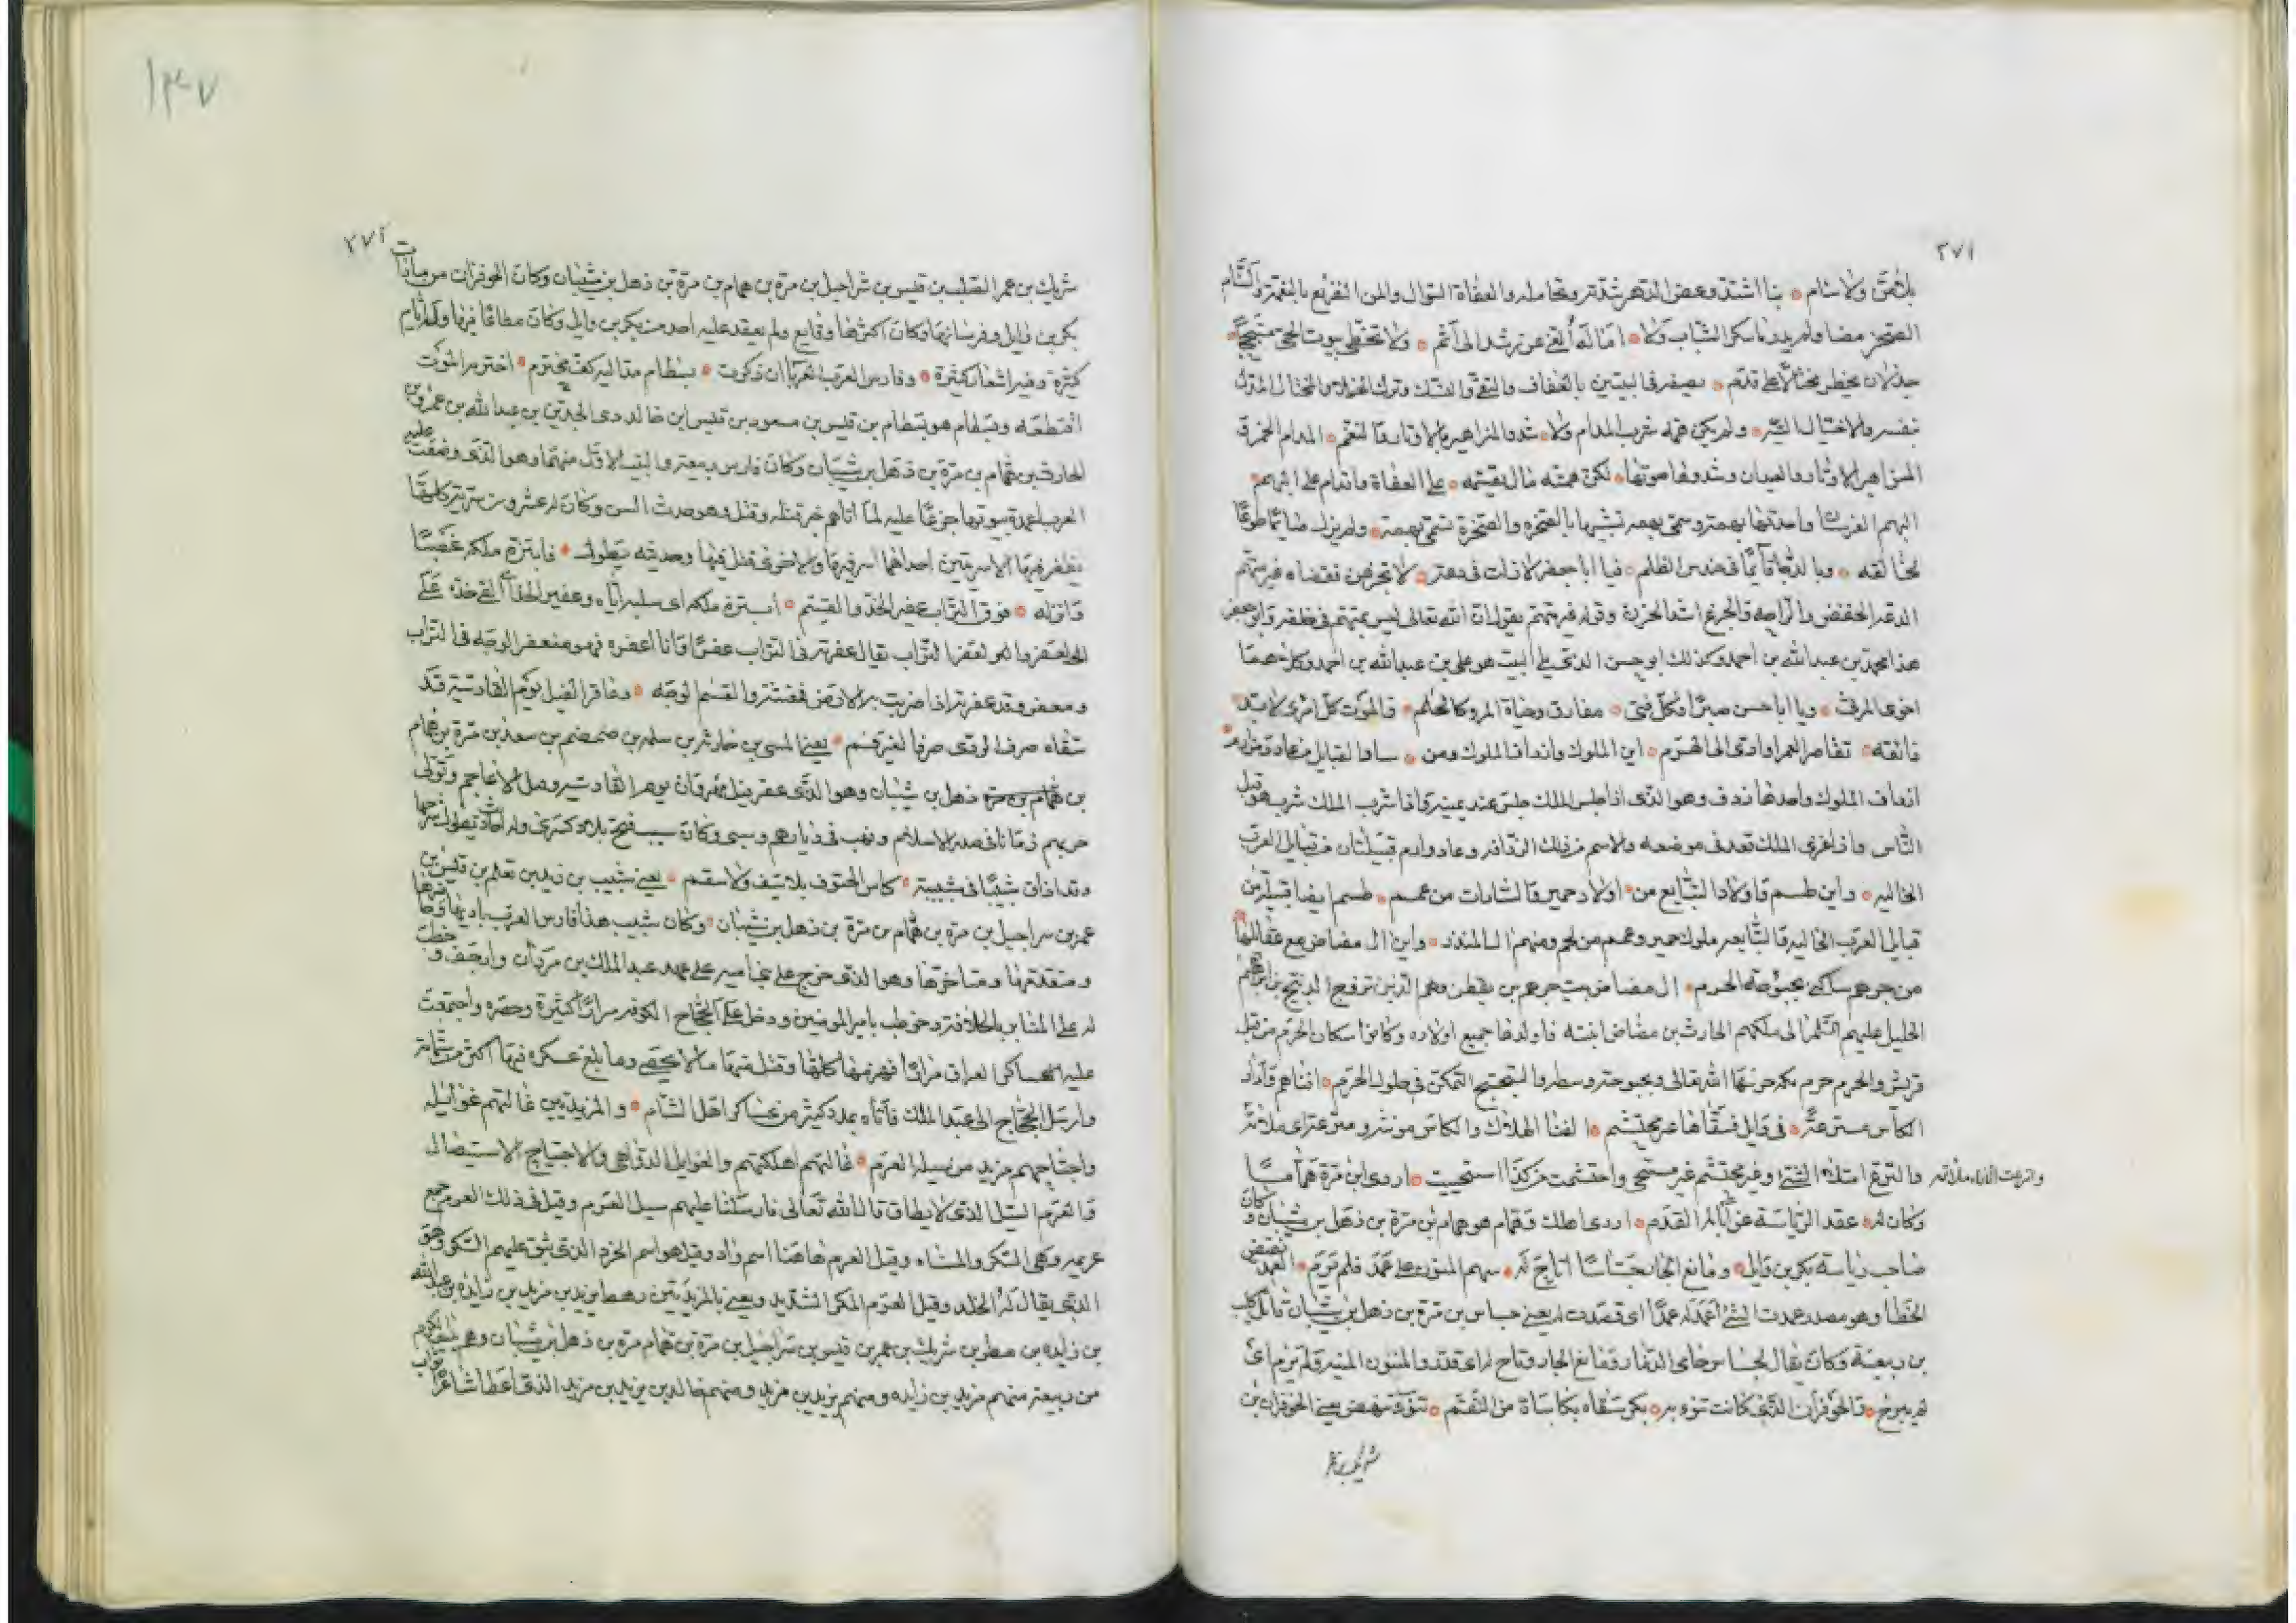 ٢٧١
بلا من ولا سام بنا اشتد وعض الدهر شدته وتحامله والعفاة السوال والمن التقريع بالنعمة والسام
الضجر مضا ولم يدر ما سكر الشباب ولا اماله ألغى عن رشد الى أثم ولا تخطى بيوت الحي
جذلان يخطر مختالا على قدم يصفه في البيتين بالعفاف والتقى والنسك وترك الخيلا والمختال المدل
بنفسه والاختيال التيه ولم يكن همه شرب المدام ولا شدو المزاهر بالاوتار والنغم المدام الخمرة
المزاهر الاوتار والعيدان وشدوها صوتها لكن همته مال يقسمه على العفاة واقدام على البهم
البهم الفرسان واحدتها بهمة وسمى بهمة تشبيها بالصخرة والصخرة تسمى بهمة ولم يزل صائما طوعا
لخالقه وبالدجا قائما في حندس الظلم فيا ابا جعفر لا زلت في دعة لا تجزعن فقضاه غير متهم
الدعة الخفض والراحة والجزع اشد الحزن وقوله غير متهم يقول ان الله تعالى ليس بمتهم في خلقه وابو جعفر
هذا محمد بن عبد الله بن احمد وكذلك ابو حسن الذي على البيت هو علي بن عبد الله بن احمد وكلاهما
اخوى المرثى ويا ابا حسن صبرا فكل فتى مفارق وحياة المرء كالحلم فالموت كل امرئ لا بد
ذائقه تقاصر العمر او ادى الى الهرم اين الملوك وارداف الملوك ومن سادا القبايل من عاد ومن ارم
ارداف الملوك واحدها ردف وهو الذى اذا جلس الملك جلس عند يمينه واذا شرب الملك شرب هو قبل
الناس واذا غزى الملك قعد في موضعه والاسم من ذلك الردافة وعاد وارم قبيلتان من قبايل العرب
الخاليه واين طسم واولاد التبايع من اولاد حمير والسادات من عمم طسم ايضا قبيلة من
قبايل العرب الخاليه والتبايعه ملوك حمير وعمم من لخم ومنهم ال المنذر واين ال مضاض مع عقائلها
من جرهم ساكني بحبوحة الحرم ال مضاض بيت جرهم بن يقطن وهم الذين تزوج الذبيح بن ابراهيم
الخليل عليهم السلام الى ملكهم الحارث بن مضاض ابنته فاولدها جميع اولاده وكانوا سكان الحرم من قبل
قريش والحرم حرم مكه حرسها الله تعالى وبحبوحته وسطه والتبحبح التمكن في حلول الحرم افناهم وآدار
الكاس مترعة في وايل فسقاها غير محتشم الفنا الهلاك والكاس مونثه ومترعة اى ملانة
والترع امتلاء الشئ وغير محتشم غير مستحي واحتشمت من كذا استحييت اردى ابن مرة هماما
واترعت الاناء ملأته
وكان له عقد الرياسة عن آبائه القدم اردى اهلك وهمام هو همام بن مرة بن ذهل بن شيبان وكان
صاحب رياسة بكر بن وايل ومانع الجار جساسا اتاح له سهم المنون على عمد فلم يرم العمد نقيض
الخطا وهو مصدر عمدت الشئ اعمد له عمدا اى قصدت له يعنى جساس بن مرة بن ذهل بن شيبان قاتل كليب
بن ربيعة وكان يقال لجساس حامى الذمار ومانع الجار وتاح له اى قدر والمنون المنيه ولم يرم اى
لم يبرح والحوفزان الذى كانت تنوء به بكر سقاه بكاسات من النقم تنوء تنهض يعنى الحوفزان بن
شريك بن عمر
١٤٧
٢٧٢
شريك بن عمر الصلب بن قيس بن شراحيل بن مرة بن همام بن مرة بن ذهل بن شيبان وكان الحوفزان من سادات
بكر بن وايل وفرسانها وكان اكثرها وقايع ولم يعقد عليه احد من بكر بن وايل وكان مطاعا فيها وله ايام
كثيرة وفيه اشعار كثيرة وفارس العرب العربا ان ذكرت بسطام مد اليه كف مخترم اخترمه الموت
اقتطعه وبسطام هو بسطام بن قيس بن مسعود بن قيس ابن خالد ذى الجدين بن عبد الله بن عمرو بن
الحارث بن همام بن مرة بن ذهل بن شيبان وكان فارس ربيعة والبيت الاول منهما وهو الذى وضعت عليه
العرب اعمدة بيوتها جزعا عليه لما اتاهم خبر قتله وقتل وهو حدث السن وكان له عشرون سرية كلها
يظفر فيها الا سريتين احداهما اسر فيها والاخرى قتل فيها وحديثه يطول فابتزه ملكه غصبا
وانزله فوق التراب عفير الخد والقسم ابتزه ملكه اى سلبه اياه وعفير الخد اى القى خده على
العفر والعفر التراب يقال عفرته في التراب عفرا وانا اعفره فهو منعفر الوجه في التراب
ومعفر وقد عفرته اذا ضربت به الارض فمغثته والقسم الوجه وعاقر الفيل يوم القادسية قد
سقاه صرف الردى صرفا لغير كرم يعنى المثنى بن حارثة بن سلمه بن ضمضم بن سعد بن مرة بن همام
بن همام بن مرة ذهل بن شيبان وهو الذى عقر فيل مهران يوم القادسيه وفل الاعاجم وتولى
حربهم زمانا في صدر الاسلام ونهب في ديارهم وسبى وكان سبب فتح بلاد كسرى وله احاديث يطول شرحها
وقد اذاق شبيبا في شبيبته كاس الحتوف بلا سيف ولا سقم يعنى شبيب بن يزيد بن نعيم بن قيس بن
عمر بن سراحيل بن مرة بن همام بن مرة بن ذهل بن شيبان وكان شبيب هذا فارس العرب باديها وحاضرها
ومتقدمها ومتاخرها وهو الذى خرج على بنى اميه على عهد عبد الملك بن مروان وارجف وخطب
له على المنابر بالخلافة وخوطب بامير المومنين ودخل على الحجاج الكوفه مرارا كثيرة وحصره واجتمعت
عليه عساكر العراق مرارا فهزمها كلها وقتل منها مالا يحصى وما بلغ عسكره فيها اكثر من ثمانمائة
وارسل الحجاج الى عبد الملك فآتاه بمدد كثير من عساكر اهل الشام والمزيديين غالتهم غوائله
واجتاحهم مزيد من سيله العرم غالتهم اهلكتهم والغوايل الدواهى والاجتياح الاستيصال
والعرم السيل الذى لا يطاق قال الله تعالى فارسلنا عليهم سيل العرم وقيل في ذلك العرم جمع
عرمه وهى السكر والمسناه وقيل العرم هاهنا اسم واد وقيل هو اسم الجرذ الذى بثق عليهم السكر وهو
الذى يقال له الخلد وقيل العرم المطر الشديد ويعنى بالمزيديين رهط يزيد بن مزيد بن زايده بن عبد الله
بن زايده بن مطر بن شريك بن عمر بن قيس بن شراحيل بن مرة بن همام مرة بن ذهل بن شيبان وهم بيت الكرم
من ربيعة منهم مزيد بن زايده ومنهم يزيد بن مزيد ومنهم خالد بن يزيد بن مزيد الذى اعطا شاعرا